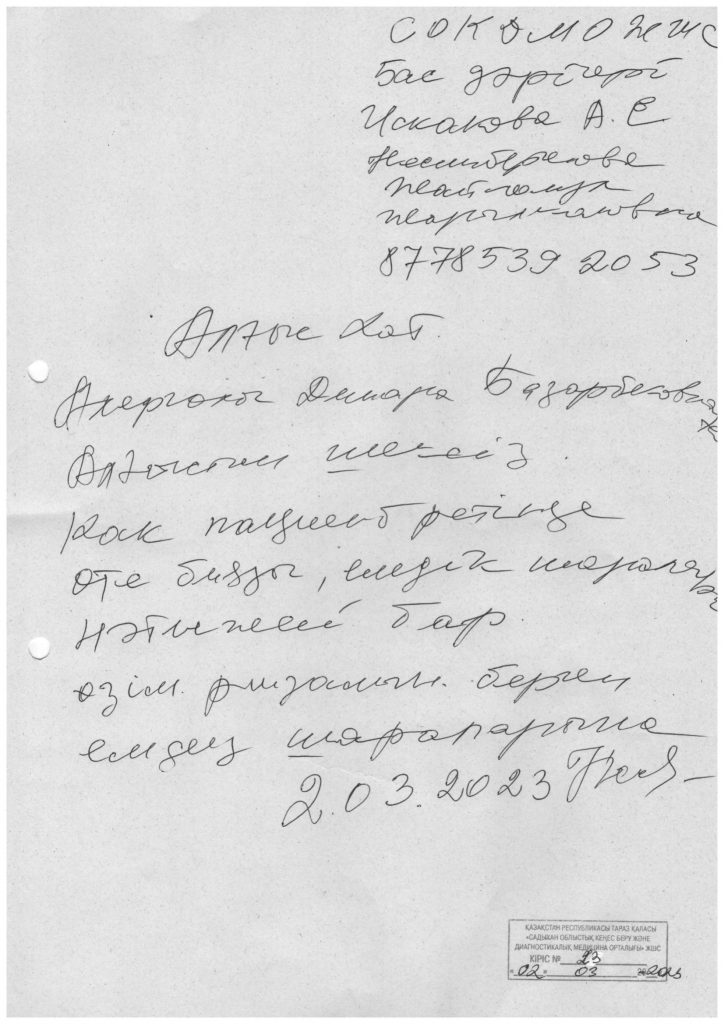 СОКДМО ЖШС
Бас дәрігері
Искакова А. Е
87785392053
Алғыс хат.
Динара Базарбековна
Алғыстан шексіз.
Как пациент ретінде
өте биязы, емдік шаралары
нәтижесі бар.
өзім ризамын. берген
емдеу шараларына
2.03.2023
ҚАЗАҚСТАН РЕСПУБЛИКАСЫ ТАРАЗ ҚАЛАСЫ
«САДЫХАН ОБЛЫСТЫҚ КЕҢЕС БЕРУ ЖӘНЕ
ДИАГНОСТИКАЛЫҚ МЕДИЦИНА ОРТАЛЫҒЫ» ЖШС
КІРІС № 23
«02» 03 2023